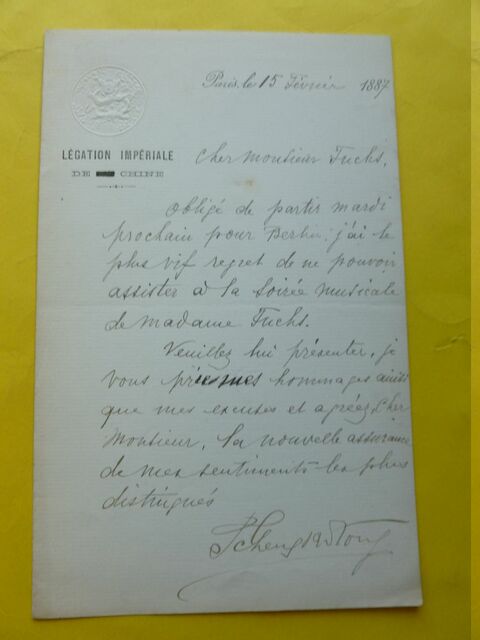 Paris, le 15 Février 1887
LÉGATION IMPÉRIALE
DE CHINE
Cher Monsieur Fuchs,
Obligé de partir mardi
prochain pour Berlin, j'ai le
plus vif regret de ne pouvoir
assister à la soirée musicale
de Madame Fuchs.
Veuillez lui présenter, je
vous prie mes hommages ainsi
que mes excuses et agréez Cher
Monsieur, la nouvelle assurance
de mes sentiments les plus
distingués